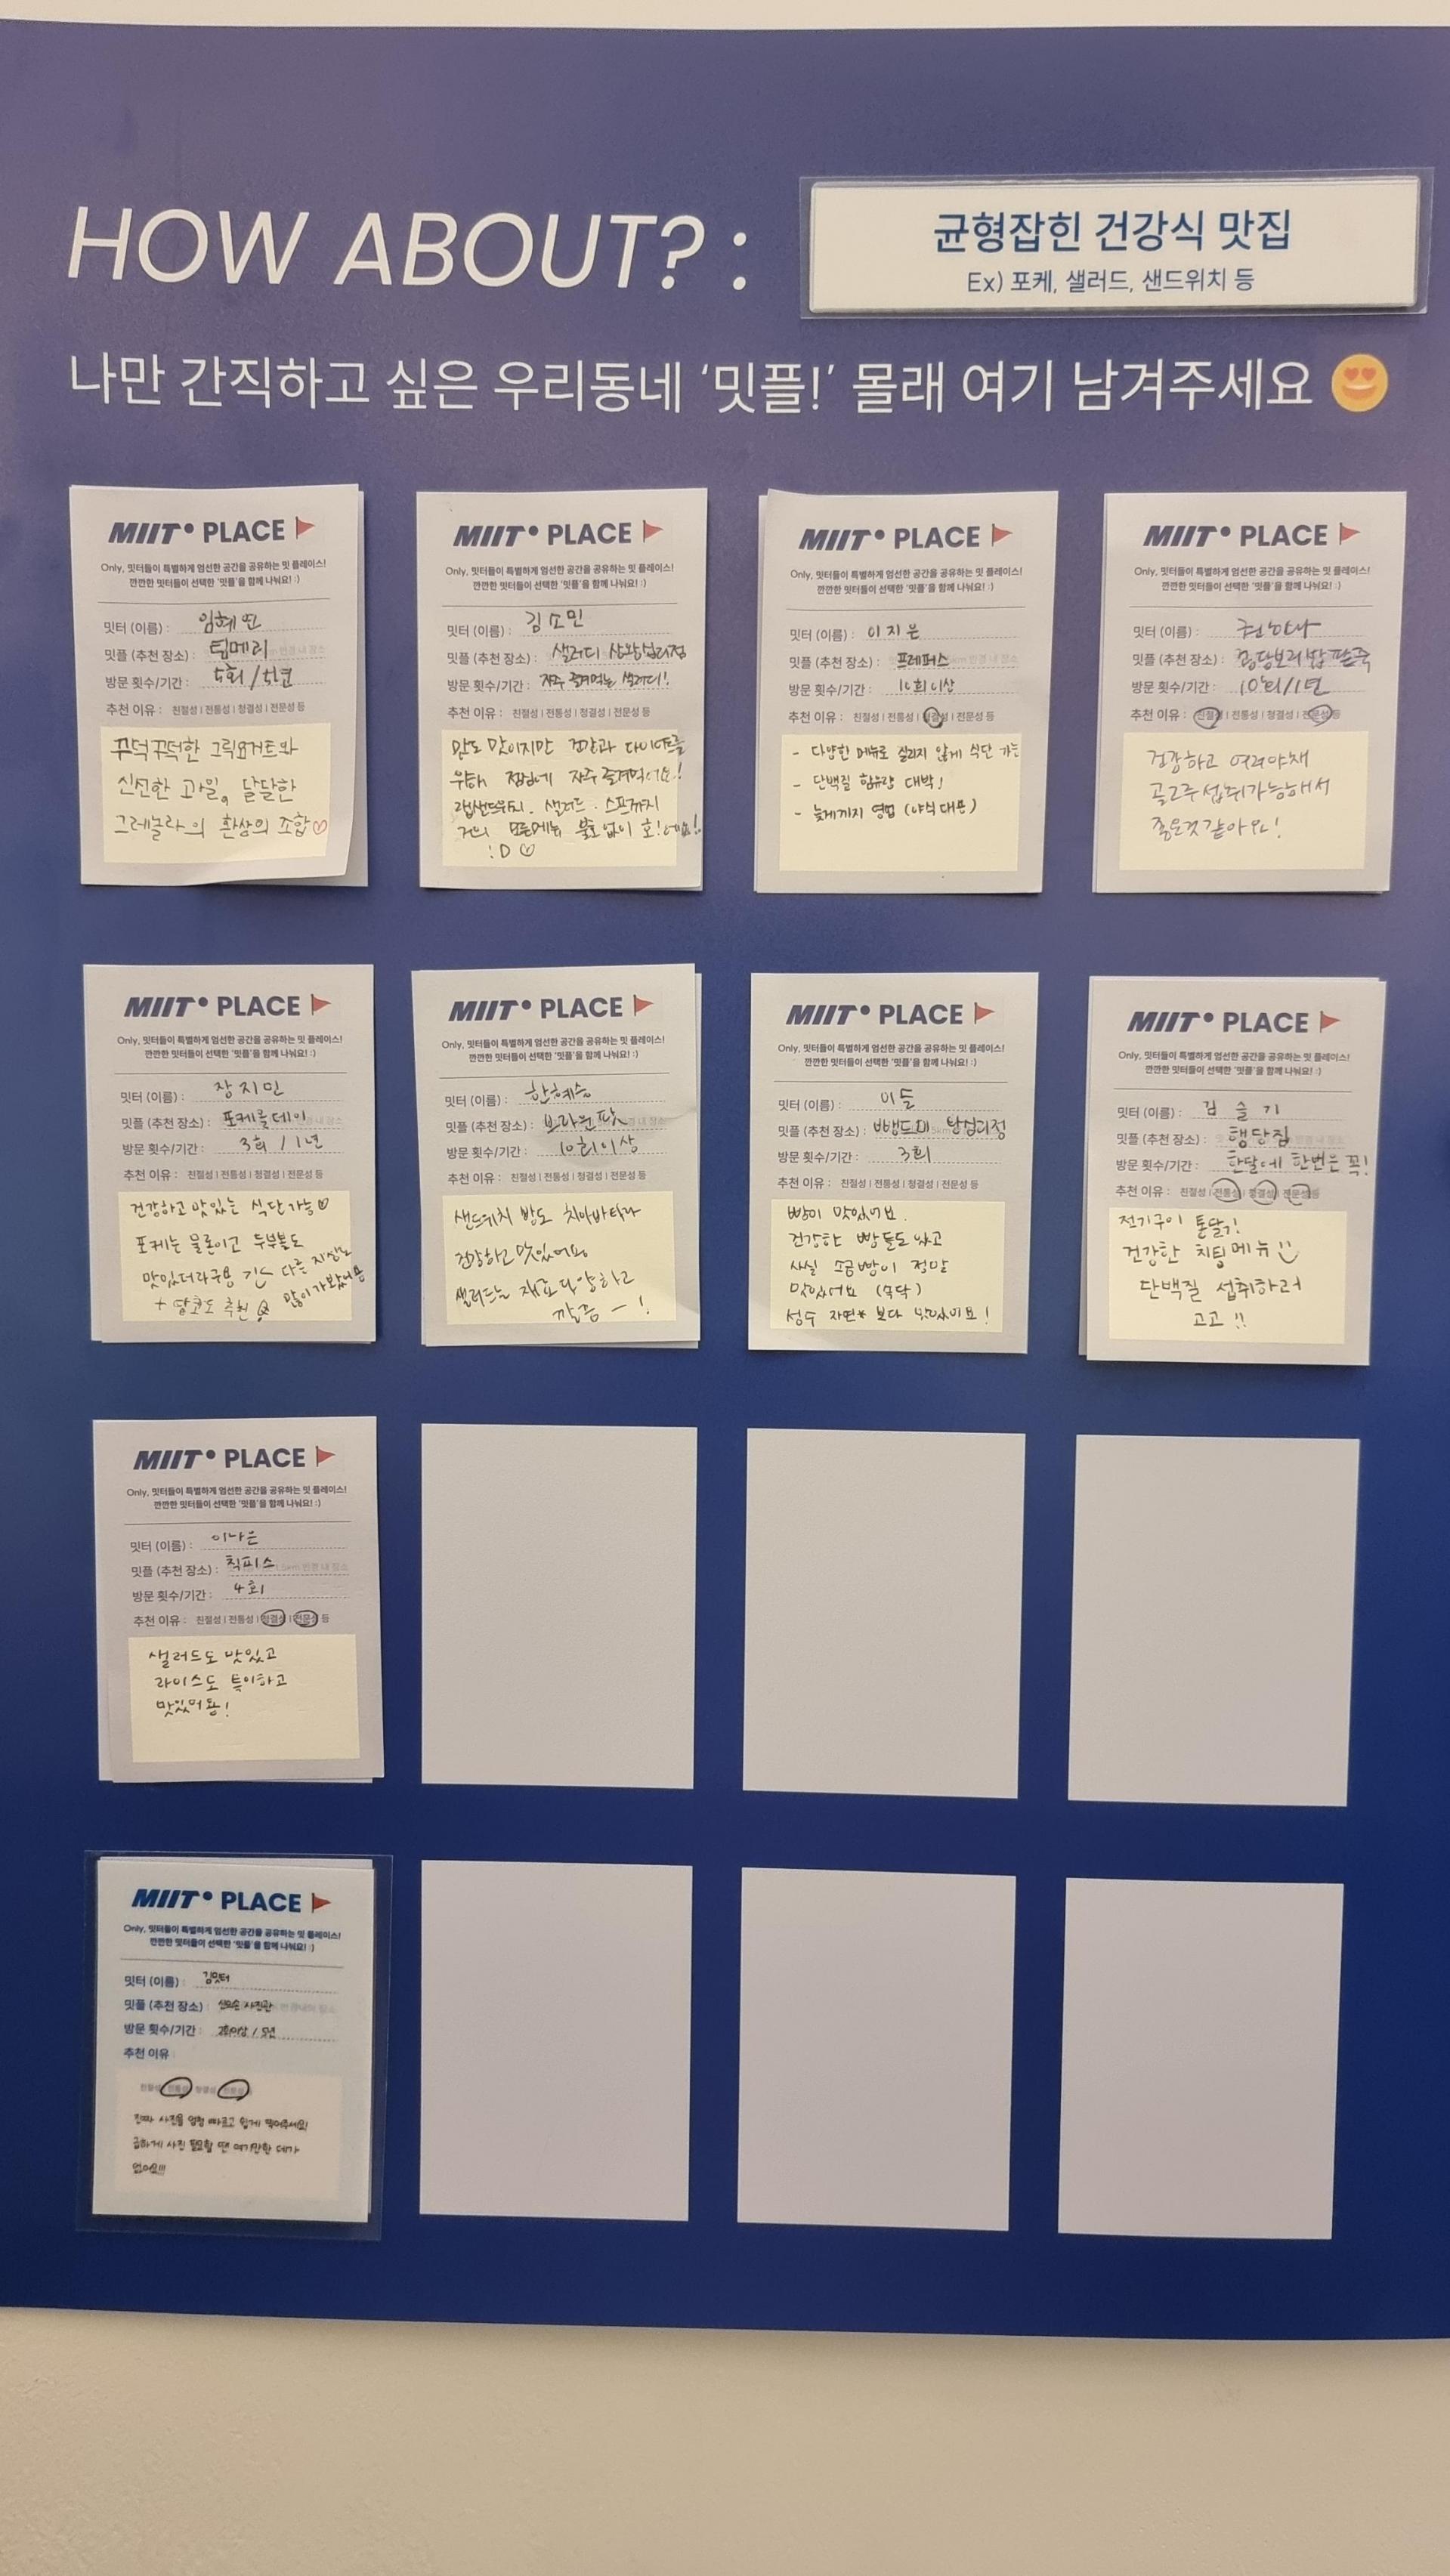 HOW ABOUT? :
균형잡힌 건강식 맛집
Ex) 포케, 샐러드, 샌드위치 등
나만 간직하고 싶은 우리동네 ‘밋플!’ 몰래 여기 남겨주세요
MIIT PLACE
Only, 밋터들이 특별하게 엄선한 공간을 공유하는 밋 플레이스!
깐깐한 밋터들이 선택한 '밋플'을 함께 나눠요! :)
밋터 (이름) :
밋플 (추천 장소) : 팀메리
방문 횟수/기간 : 5회 / 5년
추천 이유 : 친절성 | 전통성 | 청결성 | 전문성 등
꾸덕꾸덕한 그릭요거트와
신선한 과일, 달달한
그레놀라의 환상의 조합♡
MIIT PLACE
Only, 밋터들이 특별하게 엄선한 공간을 공유하는 밋 플레이스!
깐깐한 밋터들이 선택한 '밋플'을 함께 나눠요! :)
밋터 (이름) : 김소민
밋플 (추천 장소) : 샐러디 상왕십리점
방문 횟수/기간 : 자주 즐겨먹는 샐러디!
추천 이유 : 친절성 | 전통성 | 청결성 | 전문성 등
맛도 맛이지만 건강과 다이어트를
위해 점심에 자주 즐겨먹어요!
랩샌드위치, 샐러드, 스프까지
거의 모든메뉴 불호없이 호!에요!
:D
MIIT PLACE
Only, 밋터들이 특별하게 엄선한 공간을 공유하는 밋 플레이스!
깐깐한 밋터들이 선택한 '밋플'을 함께 나눠요! :)
밋터 (이름) : 이지은
밋플 (추천 장소) : 프레퍼스
방문 횟수/기간 : 10회이상
추천 이유 : 친절성 | 전통성 | 청결성 | 전문성 등
- 다양한 메뉴로 질리지 않게 식단 가능
- 단백질 함유량 대박!
- 늦게까지 영업 (야식대용)
MIIT PLACE
Only, 밋터들이 특별하게 엄선한 공간을 공유하는 밋 플레이스!
깐깐한 밋터들이 선택한 '밋플'을 함께 나눠요! :)
밋터 (이름) :
밋플 (추천 장소) :
방문 횟수/기간 : 10회/1년
추천 이유 : 친절성 | 전통성 | 청결성 | 전문성 등
건강하고 여러야채
골고루 섭취가능해서
좋은것 같아요!
MIIT PLACE
Only, 밋터들이 특별하게 엄선한 공간을 공유하는 밋 플레이스!
깐깐한 밋터들이 선택한 '밋플'을 함께 나눠요! :)
밋터 (이름) : 장지민
밋플 (추천 장소) : 포케올데이
방문 횟수/기간 : 3회 / 1년
추천 이유 : 친절성 | 전통성 | 청결성 | 전문성 등
건강하고 맛있는 식단 가능♡
포케는 물론이고 두부볼도
맛있더라구용 다른 지점도
+ 타코도 추천 많이 가봤어용
MIIT PLACE
Only, 밋터들이 특별하게 엄선한 공간을 공유하는 밋 플레이스!
깐깐한 밋터들이 선택한 '밋플'을 함께 나눠요! :)
밋터 (이름) : 한혜승
밋플 (추천 장소) : 브라운팟
방문 횟수/기간 : 10회이상
추천 이유 : 친절성 | 전통성 | 청결성 | 전문성 등
샌드위치 빵도 치아바타라
건강하고 맛있어요.
샐러드는 재료 다양하고
깔끔 - !
MIIT PLACE
Only, 밋터들이 특별하게 엄선한 공간을 공유하는 밋 플레이스!
깐깐한 밋터들이 선택한 '밋플'을 함께 나눠요! :)
밋터 (이름) : 이들
밋플 (추천 장소) : 왕십리점
방문 횟수/기간 : 3회
추천 이유 : 친절성 | 전통성 | 청결성 | 전문성 등
빵이 맛있어요.
건강한 빵들도 있고
사실 소금빵이 정말
맛있어요 (속닥)
성수 자연* 보다 맛있어요!
MIIT PLACE
Only, 밋터들이 특별하게 엄선한 공간을 공유하는 밋 플레이스!
깐깐한 밋터들이 선택한 '밋플'을 함께 나눠요! :)
밋터 (이름) : 김슬기
밋플 (추천 장소) : 행당집
방문 횟수/기간 : 한달에 한번은 꼭!
추천 이유 : 친절성 | 전통성 | 청결성 | 전문성 등
전기구이 통닭!
건강한 치팅메뉴
단백질 섭취하러
고고 !!
MIIT PLACE
Only, 밋터들이 특별하게 엄선한 공간을 공유하는 밋 플레이스!
깐깐한 밋터들이 선택한 '밋플'을 함께 나눠요! :)
밋터 (이름) : 이나은
밋플 (추천 장소) : 칙피스
방문 횟수/기간 : 4회
추천 이유 : 친절성 | 전통성 | 청결성 | 전문성 등
샐러드도 맛있고
라이스도 특이하고
맛있어용!
MIIT PLACE
Only, 밋터들이 특별하게 엄선한 공간을 공유하는 밋 플레이스!
깐깐한 밋터들이 선택한 '밋플'을 함께 나눠요! :)
밋터 (이름) : 김밋터
밋플 (추천 장소) : 사진관
방문 횟수/기간 : / 5년
추천 이유 :
친절성 전통성 청결성 전문성 등
진짜 사진을 엄청 빠르고 쉽게 찍어주세요!
급하게 사진 필요할 땐 여기만한 데가
없어요!!!